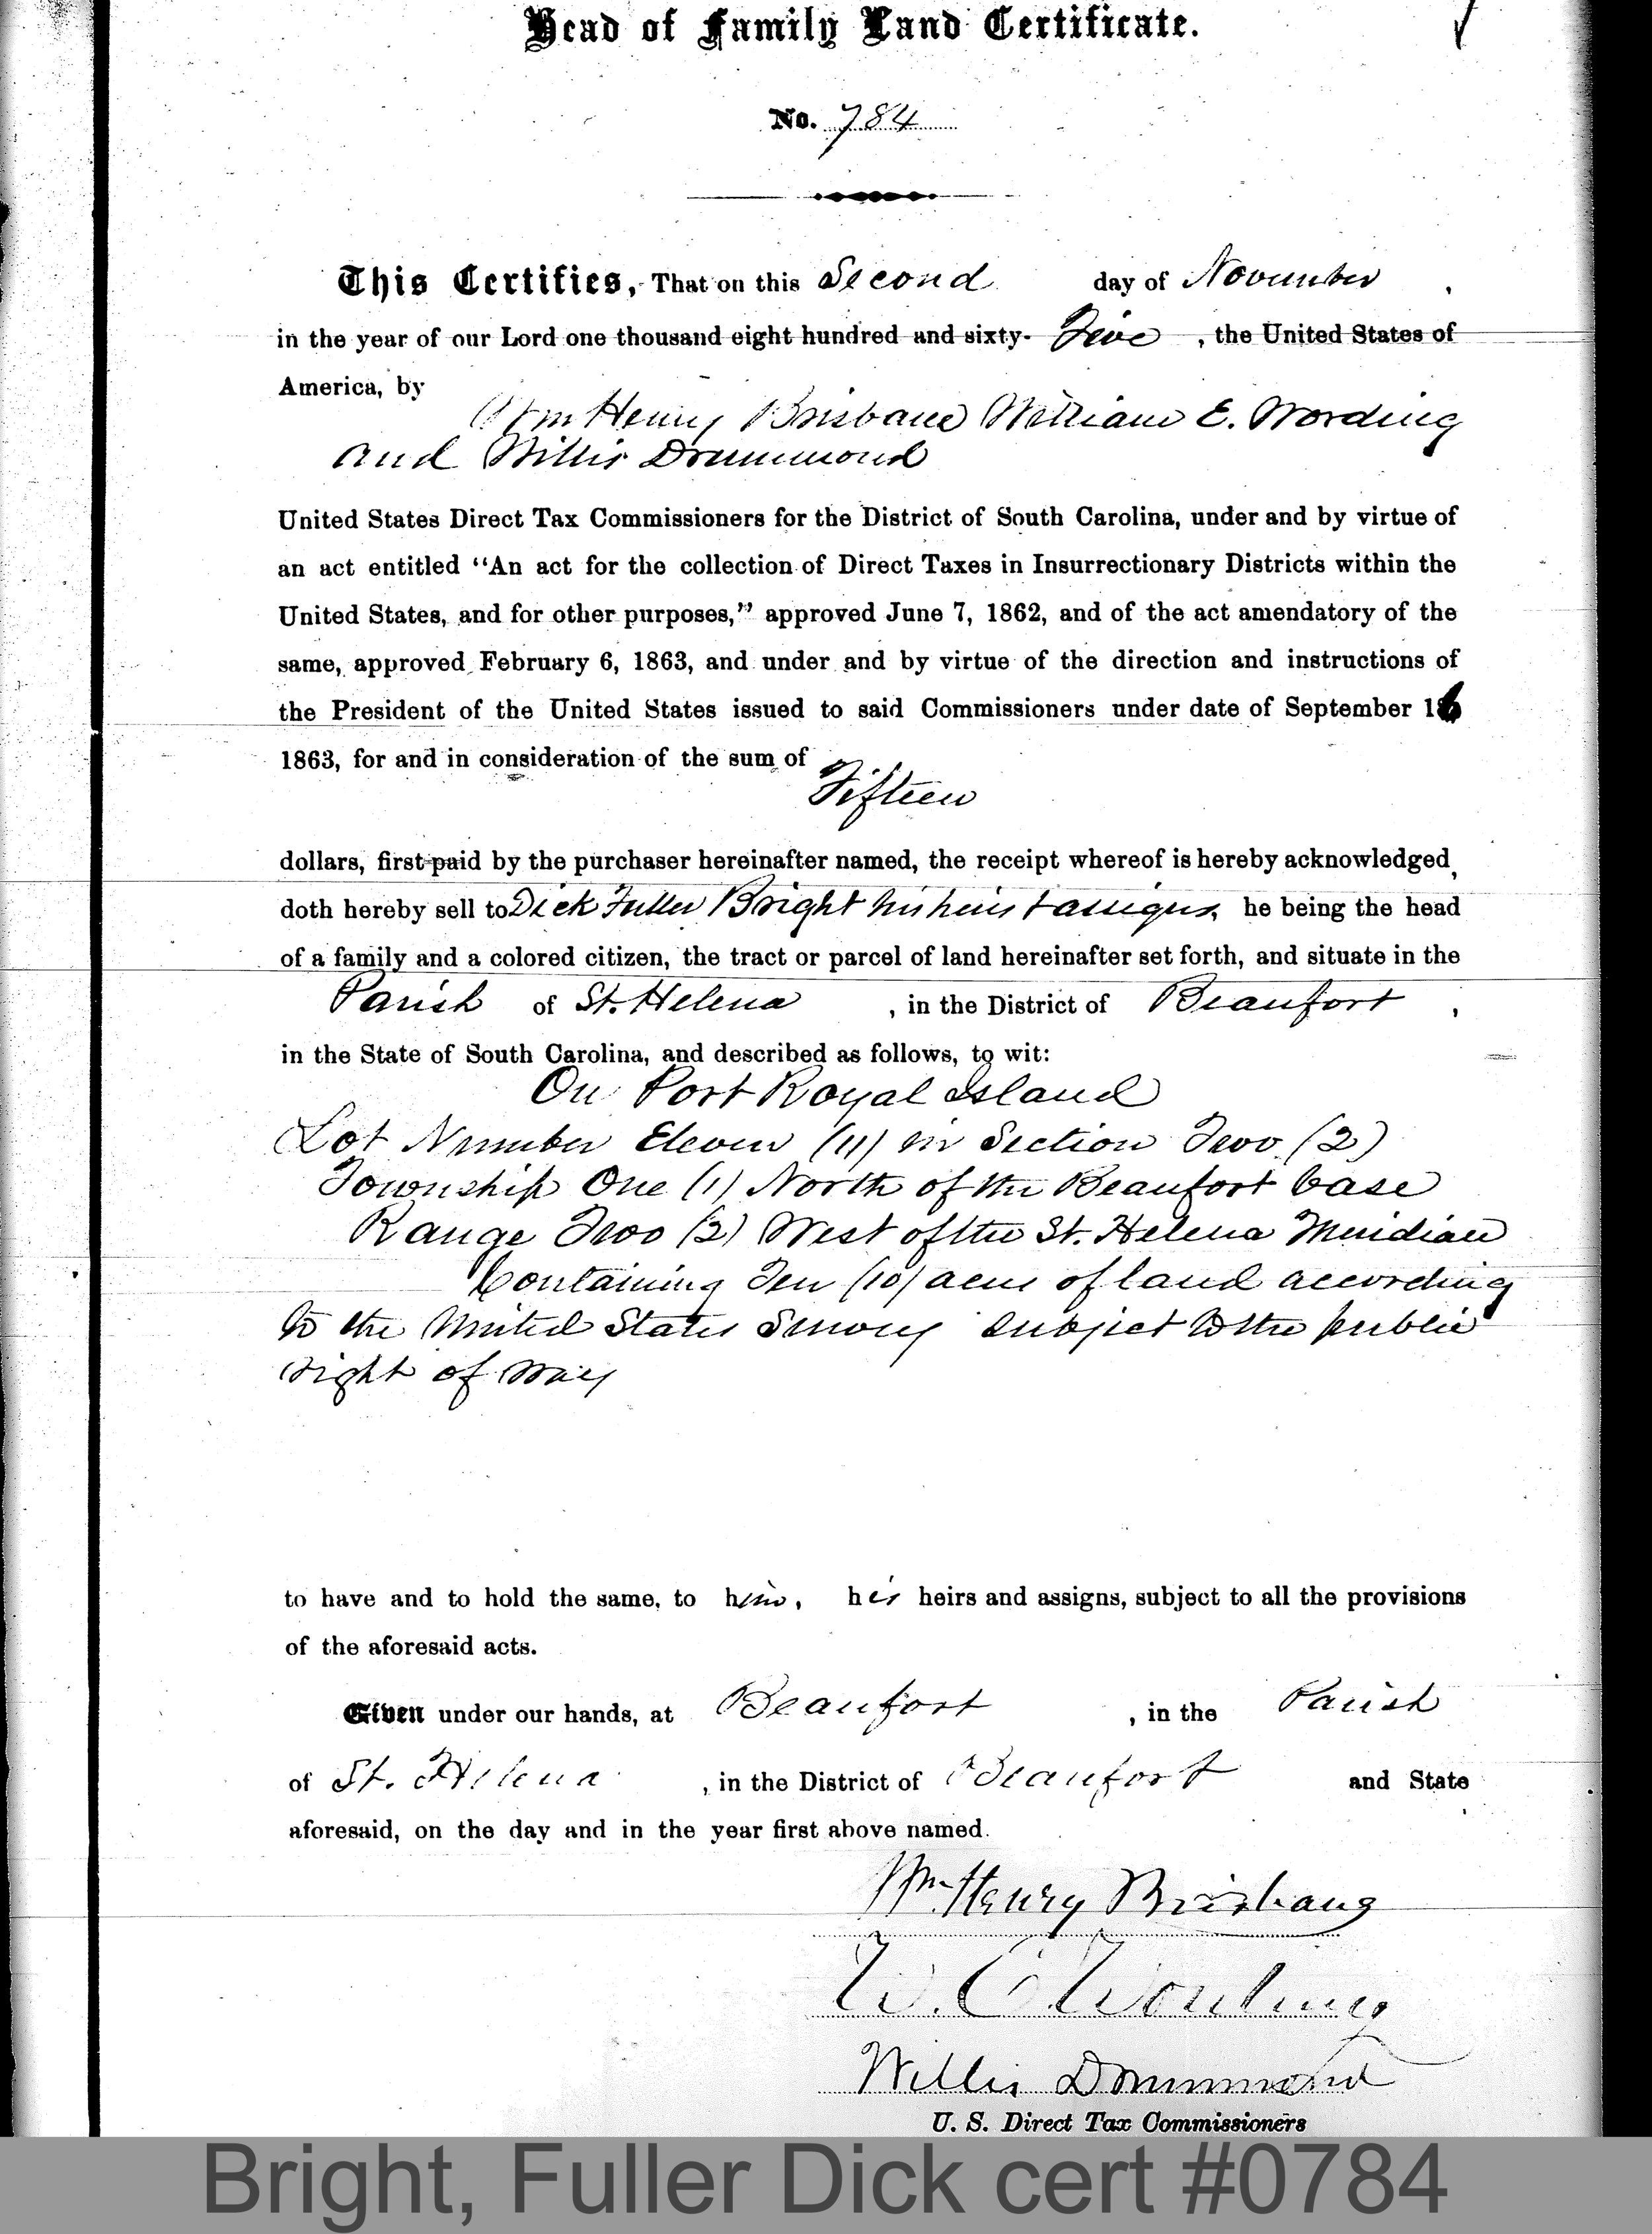 Head of Family Land Certificate.
No. 784
This Certifies, That on this Second day of November,
in the year of our Lord one thousand eight hundred and sixty- Five, the United States of
America, by
Wm Henry Brisbane William E. Wording
and Willis Drummond
United States Direct Tax Commissioners for the District of South Carolina, under and by virtue of
an act entitled "An act for the collection of Direct Taxes in Insurrectionary Districts within the
United States, and for other purposes," approved June 7, 1862, and of the act amendatory of the
same, approved February 6, 1863, and under and by virtue of the direction and instructions of
the President of the United States issued to said Commissioners under date of September 16
1863, for and in consideration of the sum of
Fifteen
dollars, first paid by the purchaser hereinafter named, the receipt whereof is hereby acknowledged,
doth hereby sell to Dick Fuller Bright his heirs & assigns, he being the head
of a family and a colored citizen, the tract or parcel of land hereinafter set forth, and situate in the
Parish of St. Helena, in the District of Beaufort,
in the State of South Carolina, and described as follows, to wit:
On Port Royal Island
Lot Number Eleven (11) in Section Two (2)
Township One (1) North of the Beaufort base
Range Two (2) West of the St. Helena Meridian
Containing Ten (10) acres of land according
to the United States Survey subject to the public
right of way
to have and to hold the same, to him, his heirs and assigns, subject to all the provisions
of the aforesaid acts.
Given under our hands, at Beaufort, in the Parish
of St. Helena, in the District of Beaufort and State
aforesaid, on the day and in the year first above named.
Wm. Henry Brisbane
W. E. Wording
Willis Drummond
U. S. Direct Tax Commissioners
Bright, Fuller Dick cert #0784